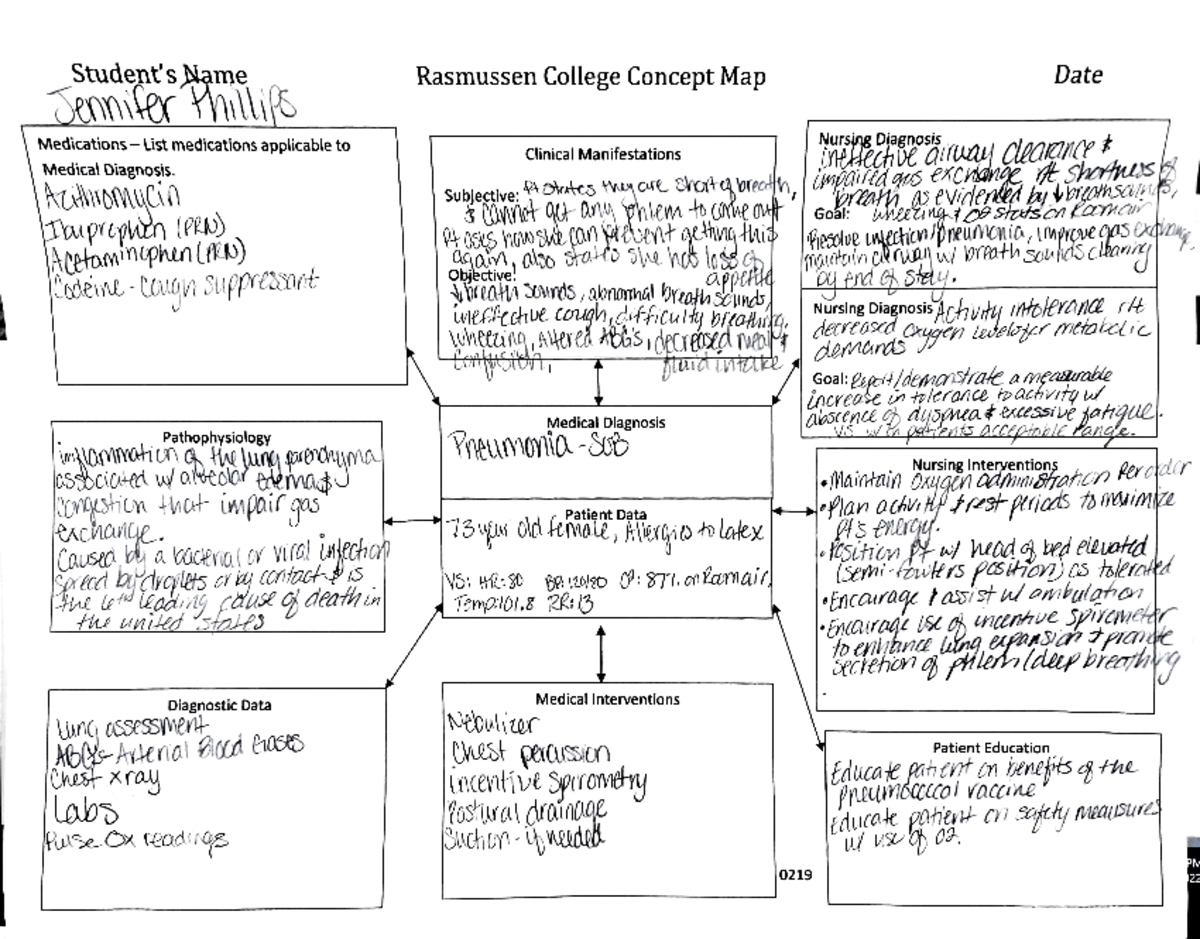 Student's Name
Rasmussen College Concept Map
Date
Jennifer Phillips
Medications – List medications applicable to
Medical Diagnosis.
Azithromycin
Ibuprophen (PRN)
Acetaminophen (PRN)
Codeine - Cough suppressant
Clinical Manifestations
Subjective: Pt states they are short of breath,
& cannot get any phlem to come out
Pt asks how she can prevent getting this
again, also states she has loss of
appetite
Objective:
↓ breath sounds, abnormal breath sounds,
ineffective cough, difficulty breathing,
wheezing, Altered ABG's, decreased meal &
confusion, fluid intake
Nursing Diagnosis
ineffective airway clearance &
impaired gas exchange r/t shortness of
breath as evidenced by ↓ breath sounds,
wheezing & O2 stats on Room air
Goal:
Resolve infection/pneumonia, improve gas exchange
maintain airway w/ breath sounds clearing
by end of stay.
Nursing Diagnosis Activity intolerance r/t
decreased oxygen levels for metabolic
demands
Goal: Report/demonstrate a measurable
increase in tolerance to activity w/
abscence of dyspnea & excessive fatigue.
VS w/in patients acceptable range.
Pathophysiology
inflammation of the lung parenchyma
associated w/ alveolar edema &
congestion that impair gas
exchange.
Caused by a bacterial or viral infection
spread by droplets or by contact & is
the 6th leading cause of death in
the united states
Medical Diagnosis
Pneumonia - SOB
Patient Data
73 year old female, Allergies to latex
VS: HR: 80 BP: 120/80 O2: 87% on Room air,
Temp: 101.8 RR: 13
Nursing Interventions
• Maintain oxygen administration Per order
• Plan activity & rest periods to maximize
pt's energy.
• Position Pt w/ head of bed elevated
(semi-fowlers position) as tolerated
• Encourage & assist w/ ambulation
• Encourage use of incentive spirometer
to enhance lung expansion & promote
secretion of phlem/deep breathing
Diagnostic Data
Lung assessment
ABG's - Arterial Blood Gases
Chest xray
Labs
Pulse Ox readings
Medical Interventions
Nebulizer
Chest percussion
Incentive Spirometry
Postural drainage
Suction - if needed
Patient Education
Educate patient on benefits of the
pneumococcal vaccine
Educate patient on safety measures
w/ use of O2.
0219